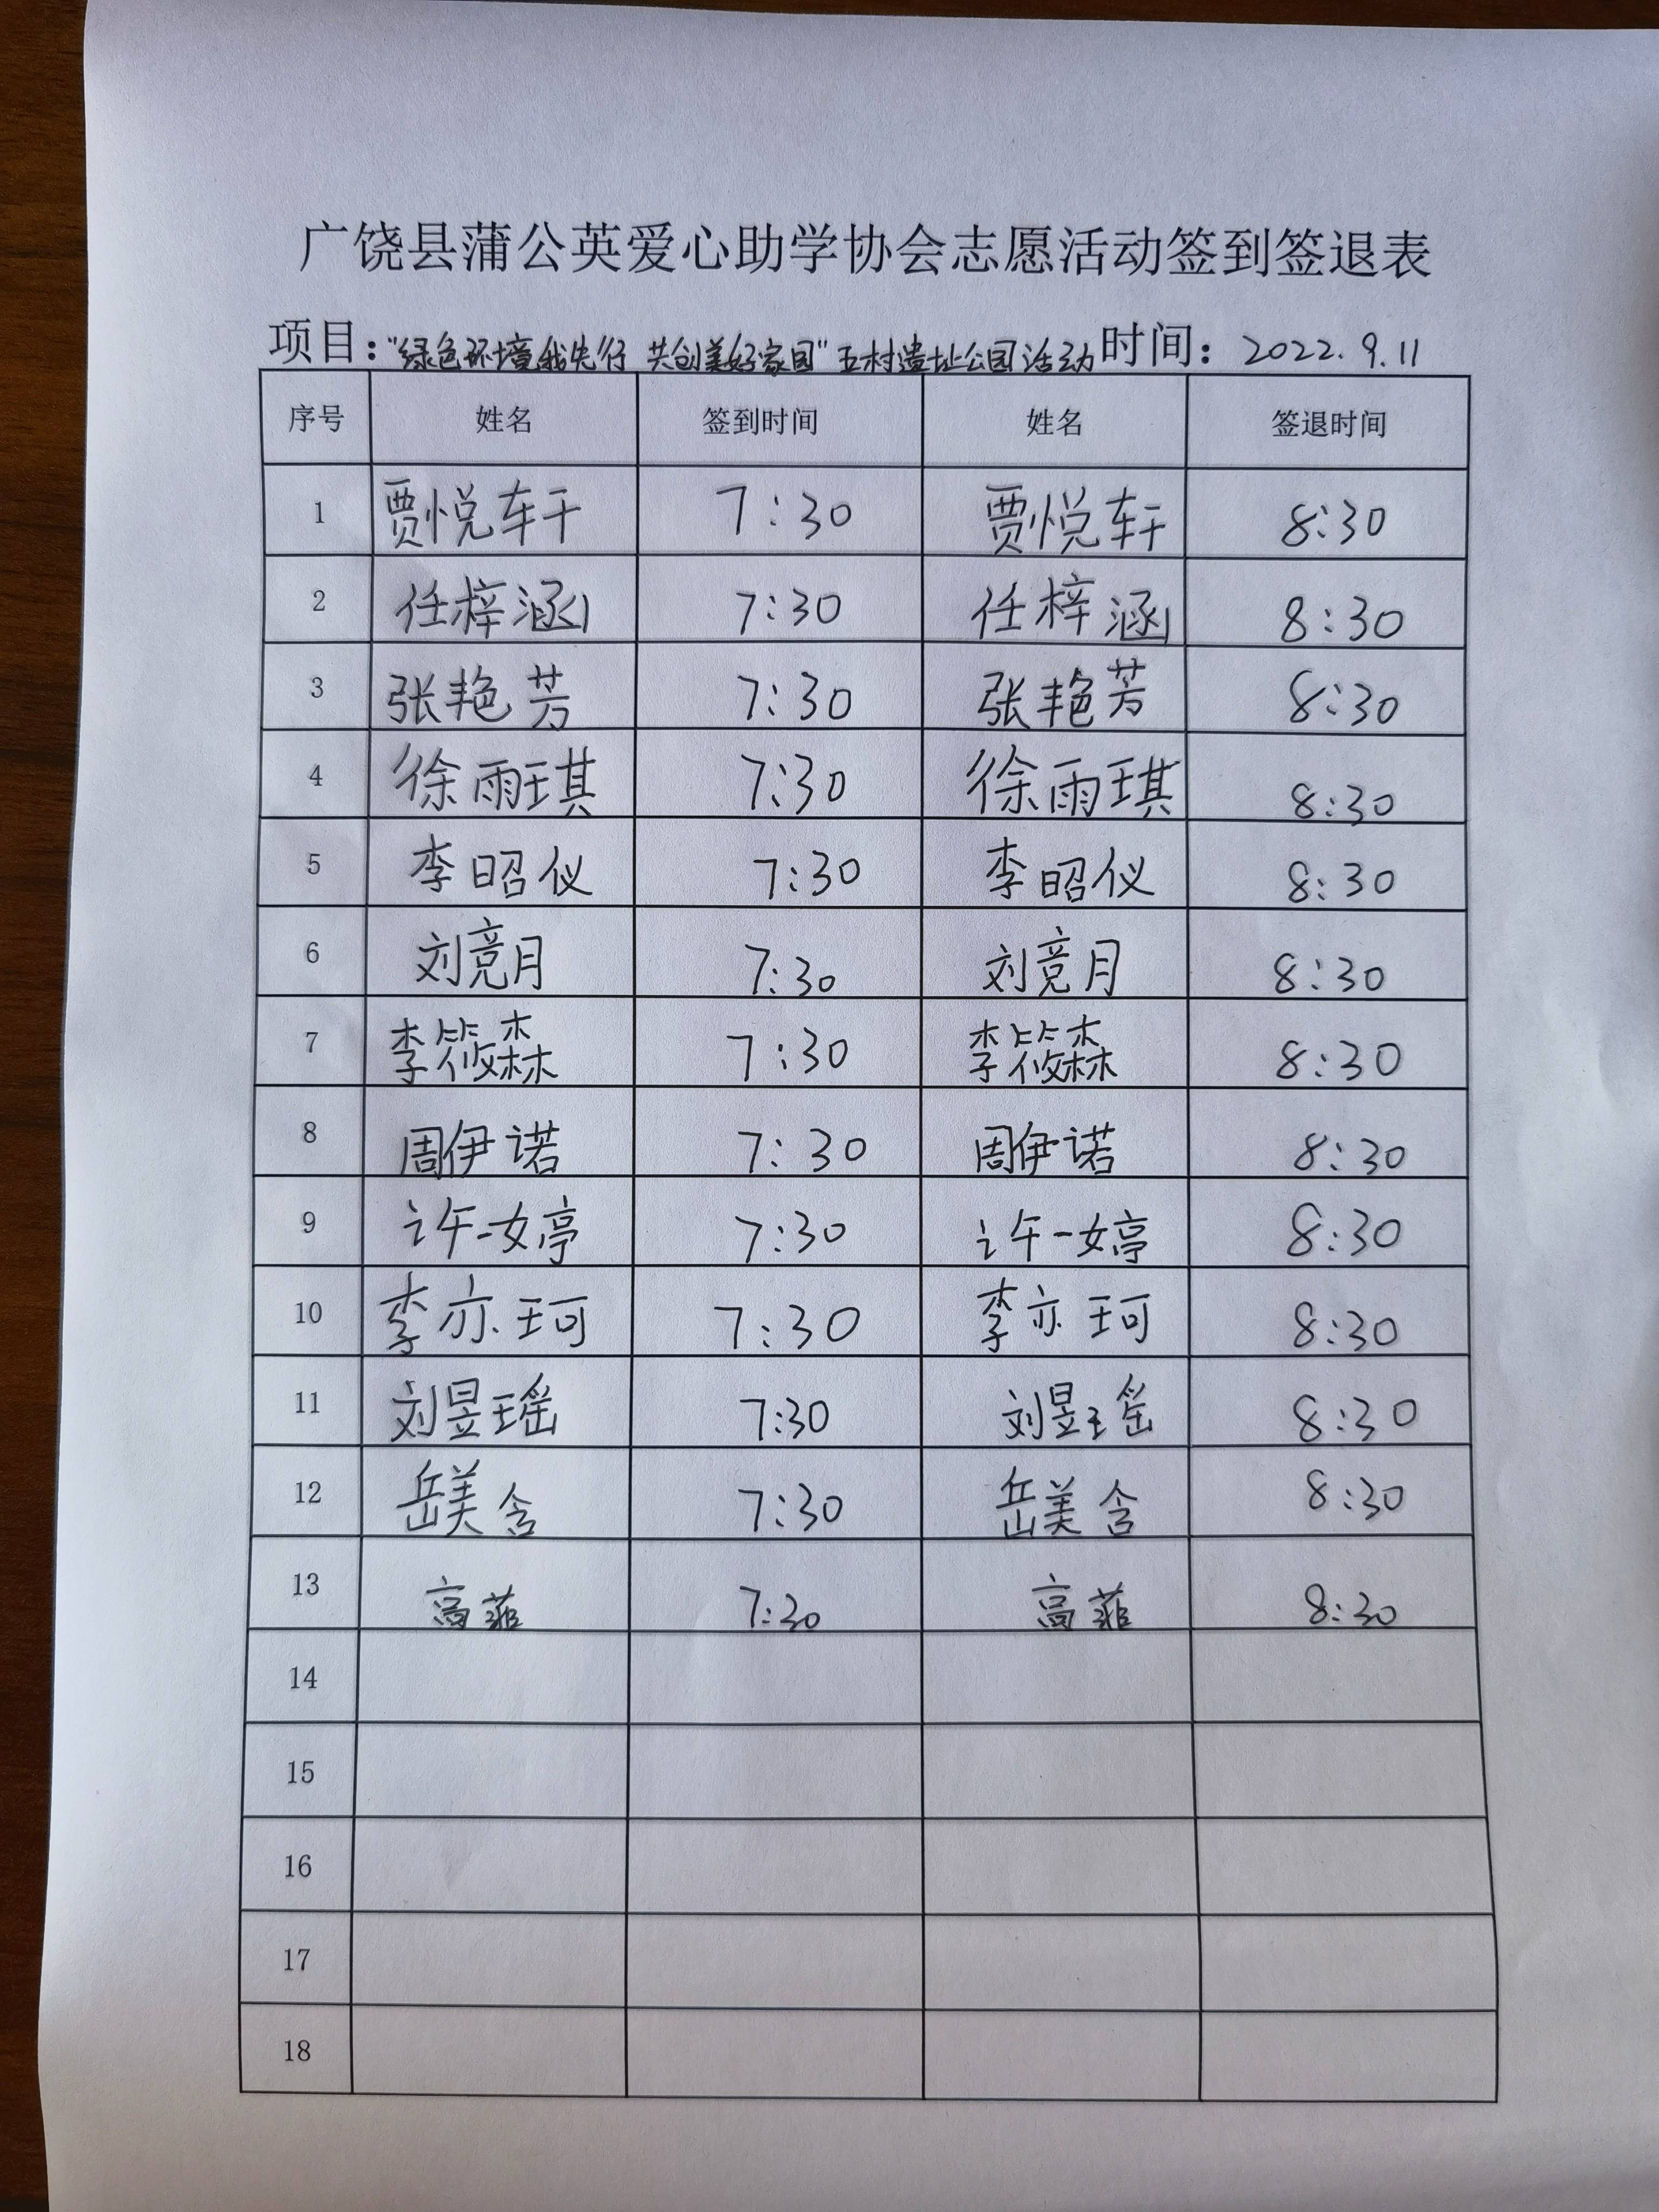 广饶县蒲公英爱心助学协会志愿活动签到签退表
项目："绿色环境我先行 共创美好家园"五村遗址公园活动 时间：2022.9.11
序号 姓名 签到时间 姓名 签退时间
1 贾悦轩 7:30 贾悦轩 8:30
2 任梓涵 7:30 任梓涵 8:30
3 张艳芳 7:30 张艳芳 8:30
4 徐雨琪 7:30 徐雨琪 8:30
5 李昭仪 7:30 李昭仪 8:30
6 刘竞月 7:30 刘竞月 8:30
7 李筱森 7:30 李筱森 8:30
8 周伊诺 7:30 周伊诺 8:30
9 许一婷 7:30 许一婷 8:30
10 李亦珂 7:30 李亦珂 8:30
11 刘昱瑶 7:30 刘昱瑶 8:30
12 岳美含 7:30 岳美含 8:30
13 高菲 7:30 高菲 8:30
14
15
16
17
18